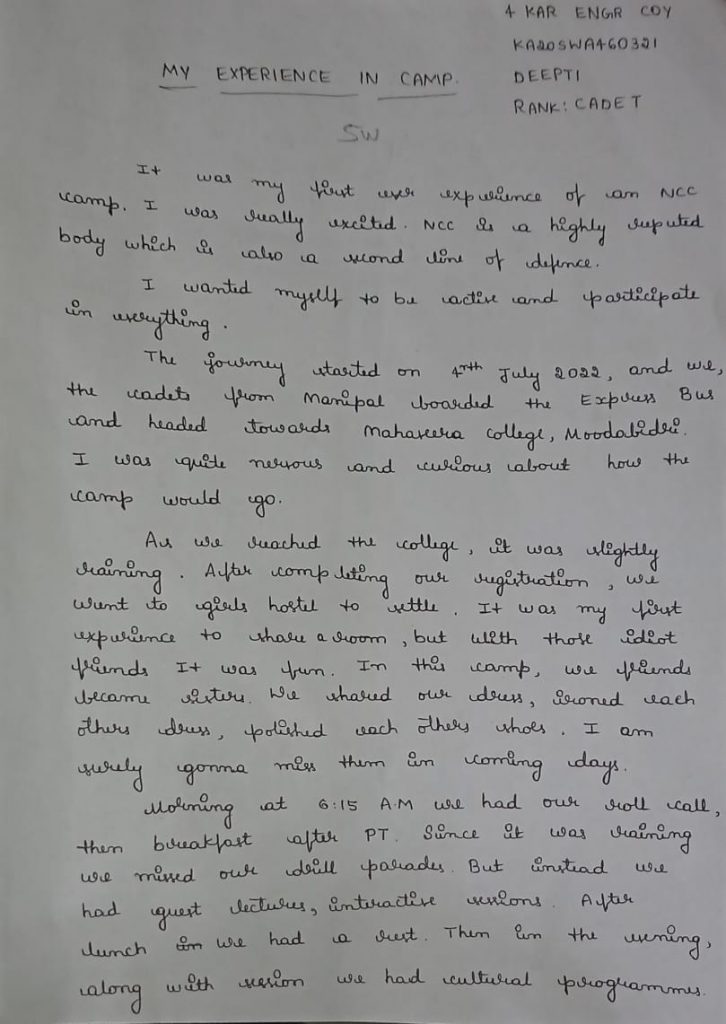 4 KAR ENGR COY
KA20SWA460321
MY EXPERIENCE IN CAMP.
DEEPTI
RANK: CADET
SW
It was my first ever experience of an NCC
camp. I was really excited. NCC is a highly reputed
body which is also a second line of defence.
I wanted myself to be active and participate
in everything.
The journey started on 4rth July 2022, and we,
the cadets from Manipal boarded the Express Bus
and headed towards Mahaveera college, Moodabidri.
I was quite nervous and curious about how the
camp would go.
As we reached the college, it was slightly
raining. After completing our registration, we
went to girls hostel to settle. It was my first
experience to share a room, but with those idiot
friends It was fun. In this camp, we friends
became sisters. We shared our dress, ironed each
others dress, polished each others shoes. I am
surely gonna miss them in coming days.
Morning at 6:15 A.M we had our roll call,
then breakfast after PT. Since it was raining
we missed our drill parades. But instead we
had guest lectures, interactive sessions. After
lunch in we had a rest. Then in the evening,
along with session we had cultural programmes.